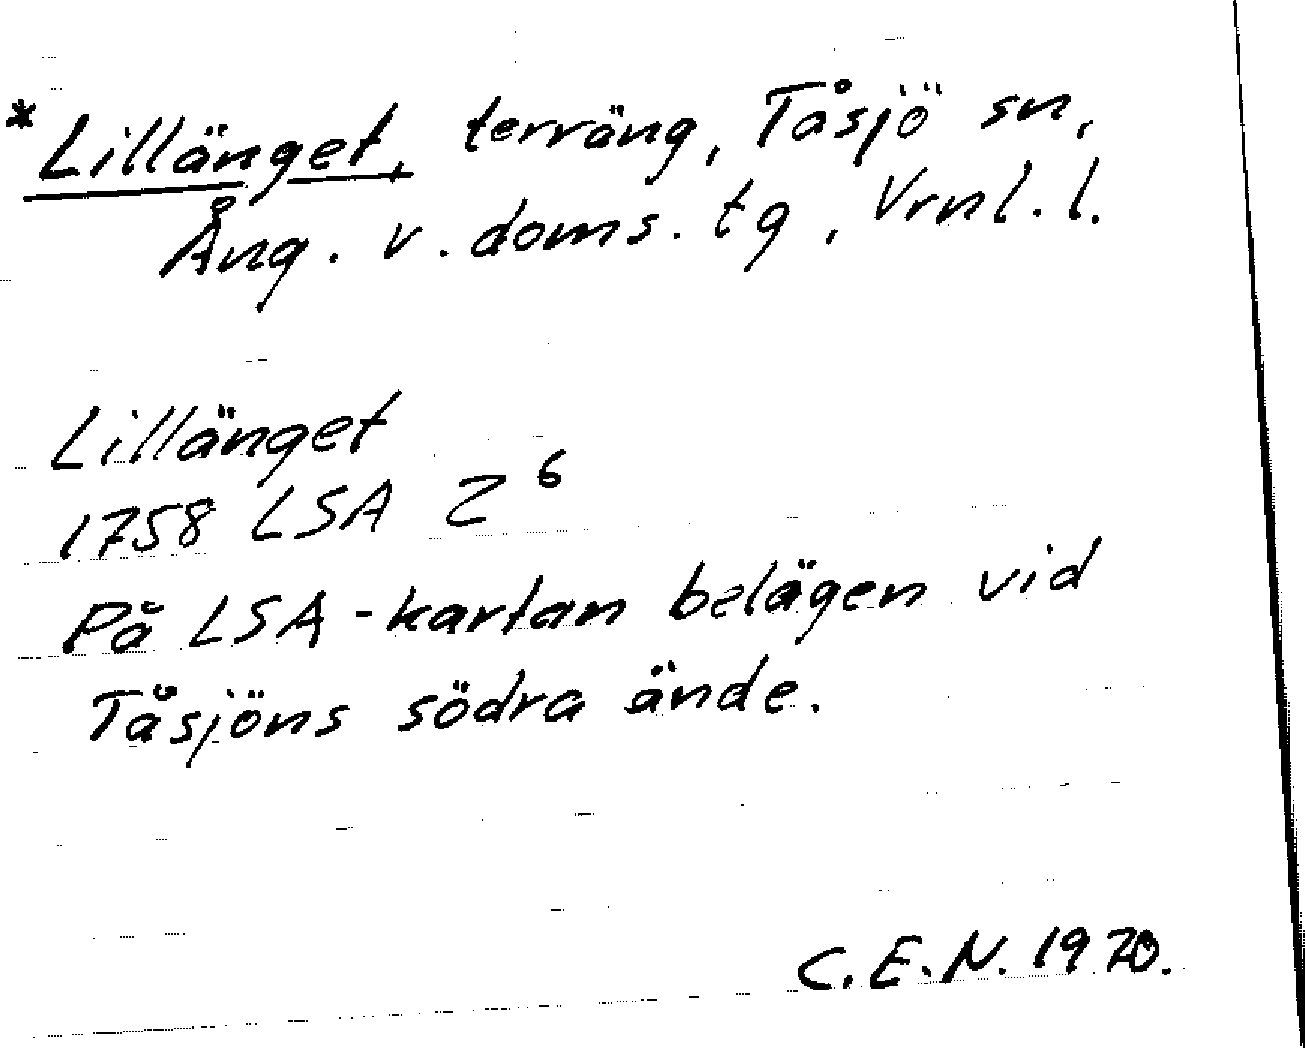 *Lillänget, terräng, Tåsjö sn,
Ång. v. doms. tg, Vrnl. l.
Lillänget
1758 LSA Z⁶
På LSA-kartan belägen vid
Tåsjöns södra ände.
C.E.N. 1970.